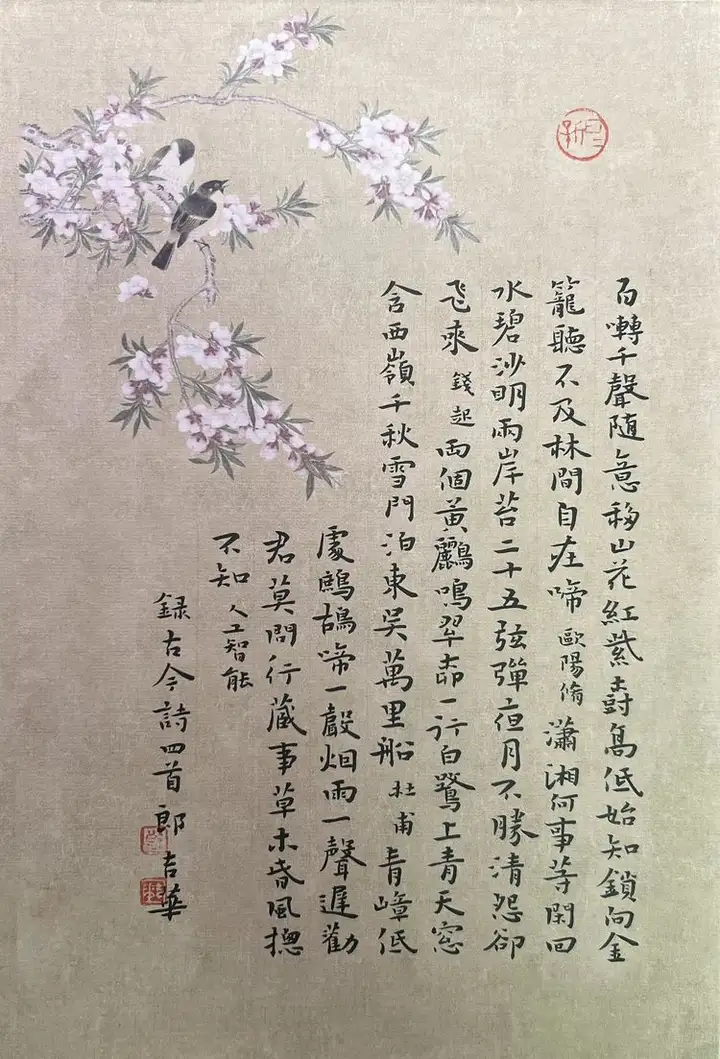 百囀千聲随意移山花紅紫樹髙低始知鎖向金
籠聽不及林間自在啼 歐陽脩 瀟湘何事等閑回
水碧沙明兩岸苔二十五弦彈夜月不勝清怨卻
飞來 錢起 兩個黃鸝鳴翠柳一行白鷺上青天窓
含西嶺千秋雪門泊東吴萬里船 杜甫 青嶂低
處鷓鴣啼一聲烟雨一聲遲勸
君莫問行藏事草木春風摠
不知 人工智能
録古今詩四首 郎吉華